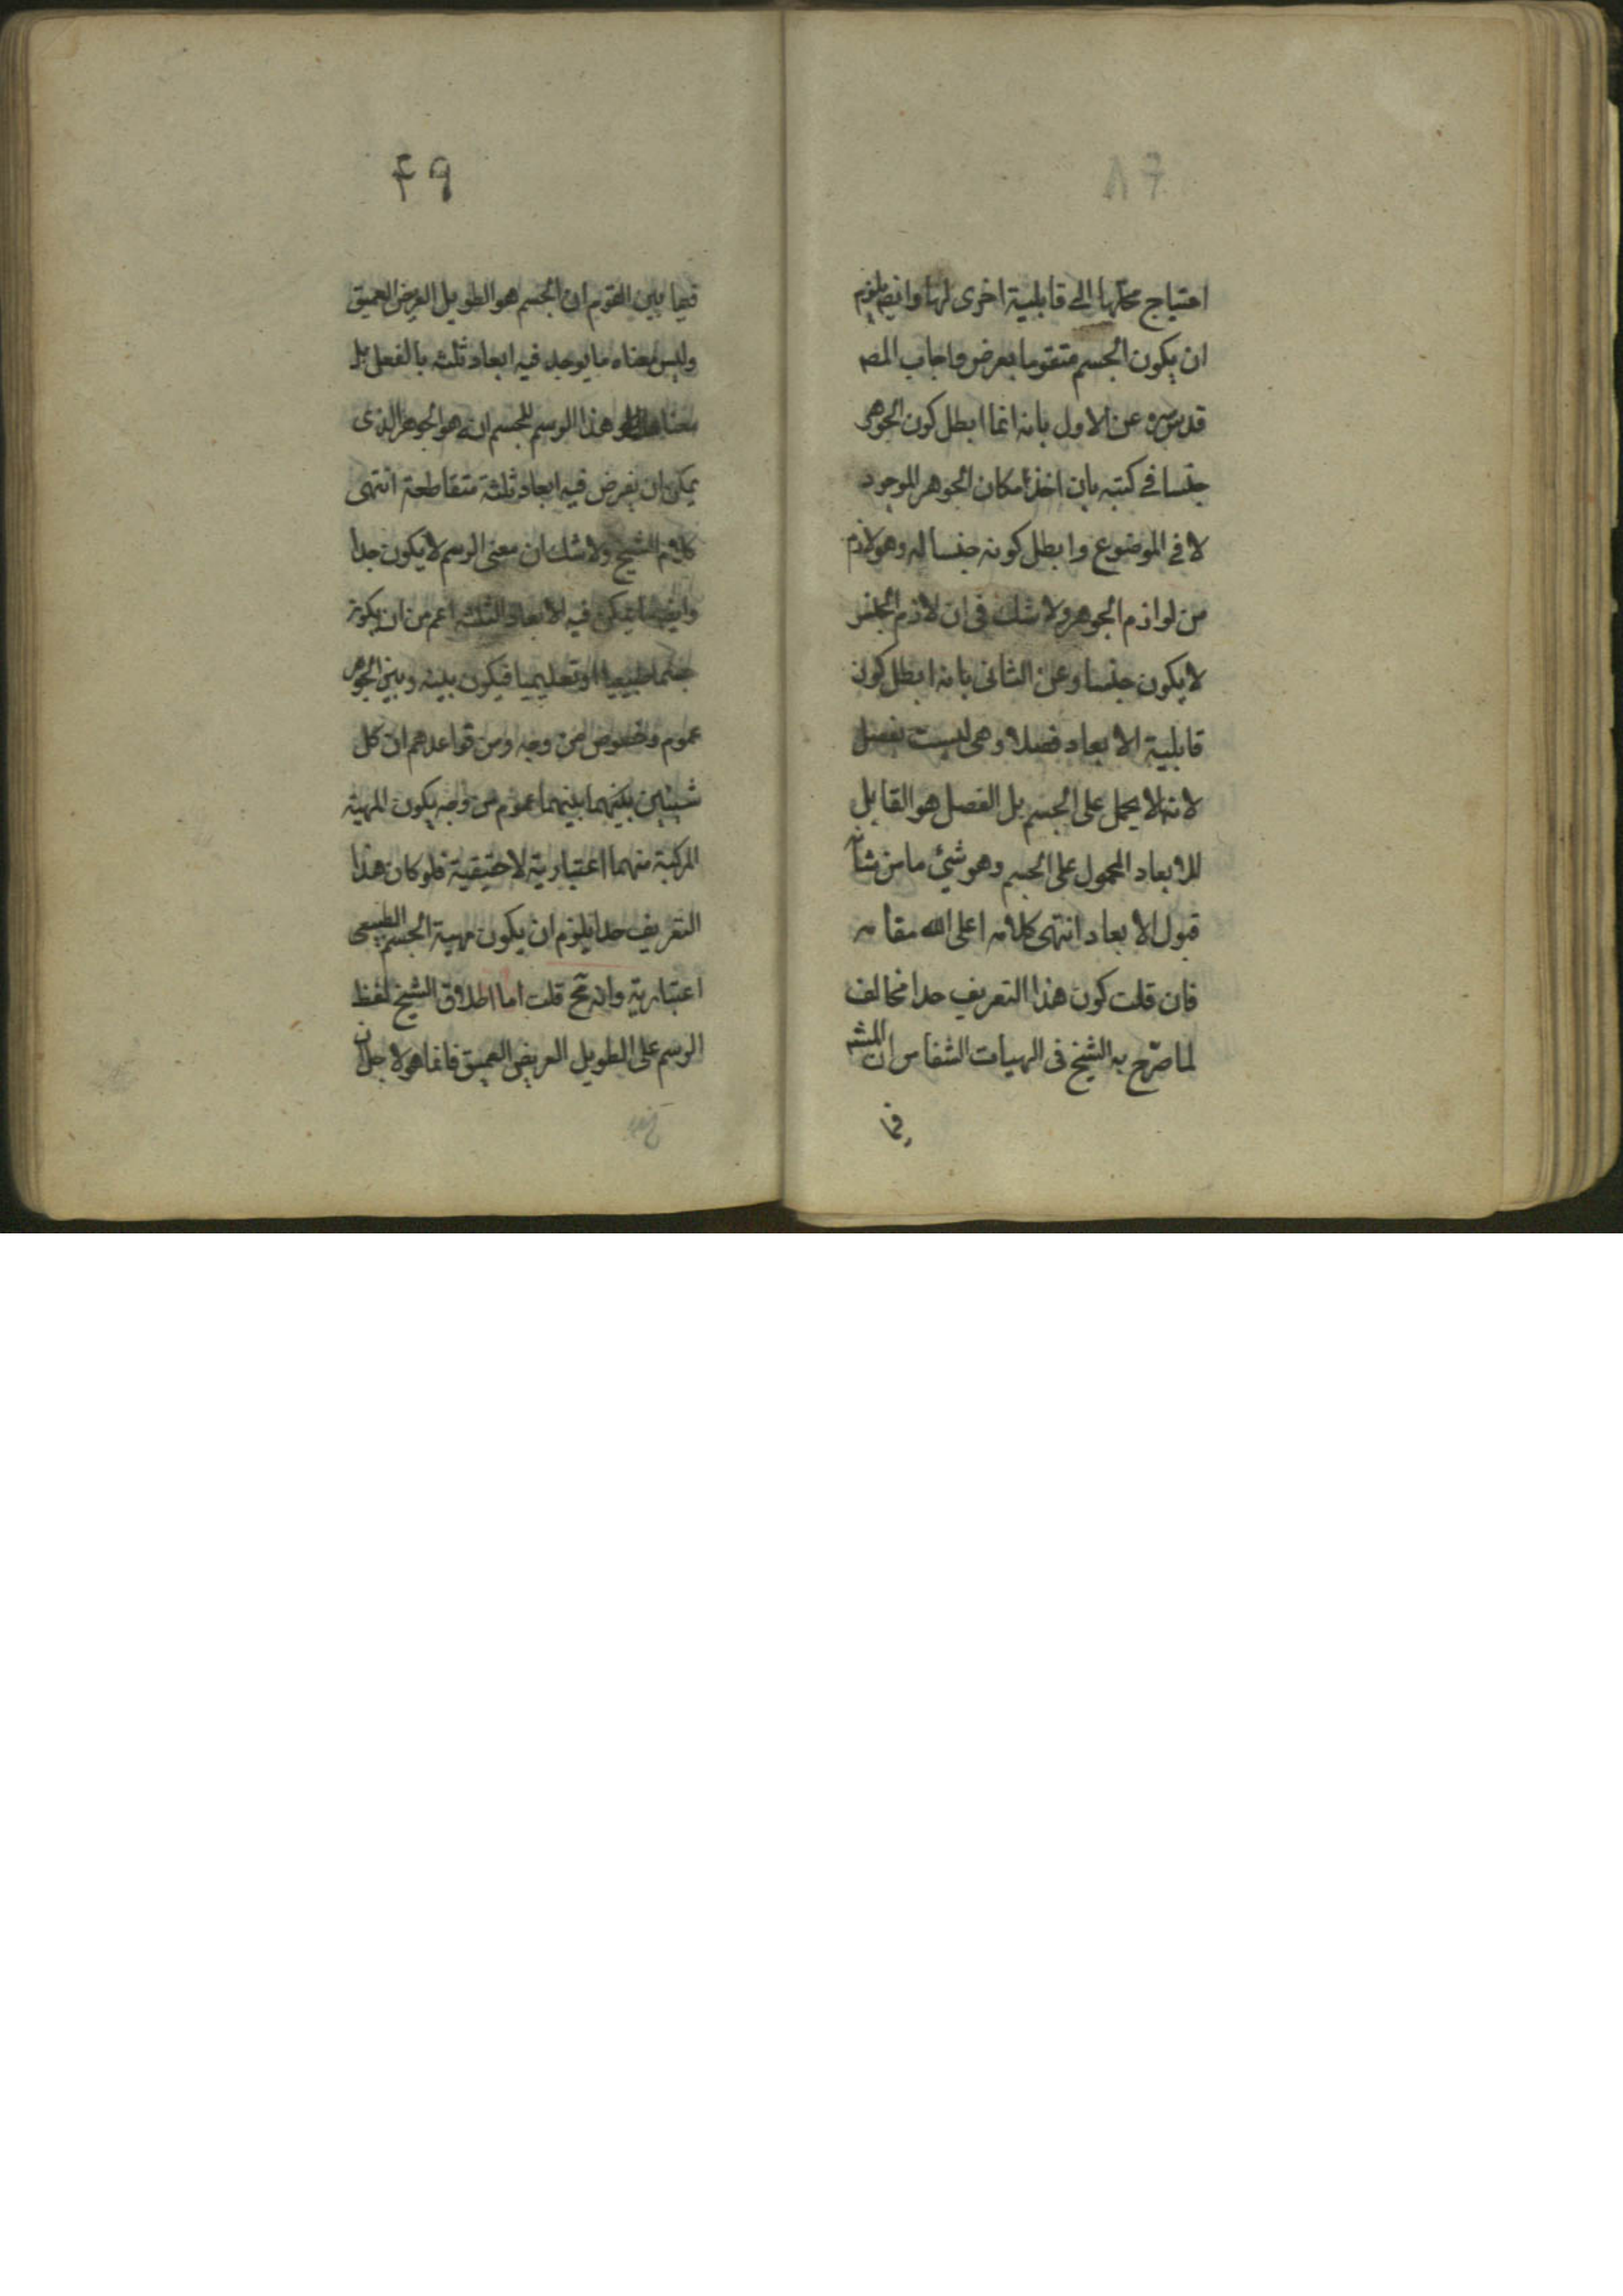 احتياج محلها الى قابلية اخرى لها وايضا يلزم
ان يكون الجسم متقوما بعرض واجاب المصـ
قدس سره عن الاول بانه انما ابطل كون الجوهر
جنسا فى كتبه بان اخذ امكان الجوهر الموجود
لا فى الموضوع وابطل كونه جنسا له وهو لازم
من لوازم الجوهر ولا شك فى ان لازم الجنس
لا يكون جنسا وعن الثانى بانه ابطل كون
قابلية الابعاد فصلا وهى ليست بفصل
لانه لا يحمل على الجسم بل الفصل هو القابل
للابعاد المحمول على الجسم وهو شئ ما من شانه
قبول الابعاد انتهى كلامه اعلى الله مقامه
فان قلت كون هذا التعريف حدا مخالف
لما صرّح به الشيخ فى الهيات الشفا من ان المشهـ
فيما
٦٩
فيما بين القوم ان الجسم هو الطويل العريض العميق
وليس معناه ما يوجد فيه ابعاد ثلثه بالفعل بل
معنا هذا الرسم للجسم انه هو الجوهر الذى
يمكن ان يفرض فيه ابعاد ثلثة متقاطعة انتهى
كلام الشيخ ولا شك ان معنى الرسم لا يكون حدا
وايضا ما يمكن فيه الابعاد الثلثه اعم من ان يكون
جسما طبيعيا او تعليميا فيكون بينه وبين الجوهر
عموم وخصوص من وجه ومن قواعدهم ان كل
شيئين بينهما عموم من وجه يكون المهية
المركبة منهما اعتبارية لا حقيقية فلو كان هذا
التعريف حدا يلزم ان يكون مهية الجسم الطبيعى
اعتبارية وانه مح قلت اما اطلاق الشيخ لفظ
الرسم على الطويل العريض العميق فانما هو لاجل ان